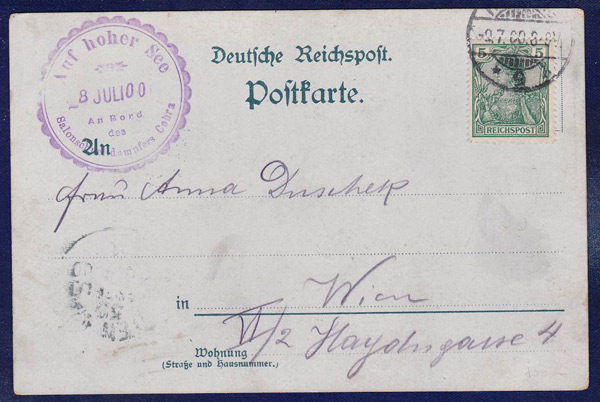 Auf hoher See
8 JULI 00
An Bord
des
Salonschnelldampfers Cobra
Deutsche Reichspost.
Postkarte.
5 5
REICHSPOST
An
Frau Anna Duschek
in Wien
VI/2 Haydngasse 4
Wohnung
(Straße und Hausnummer.)